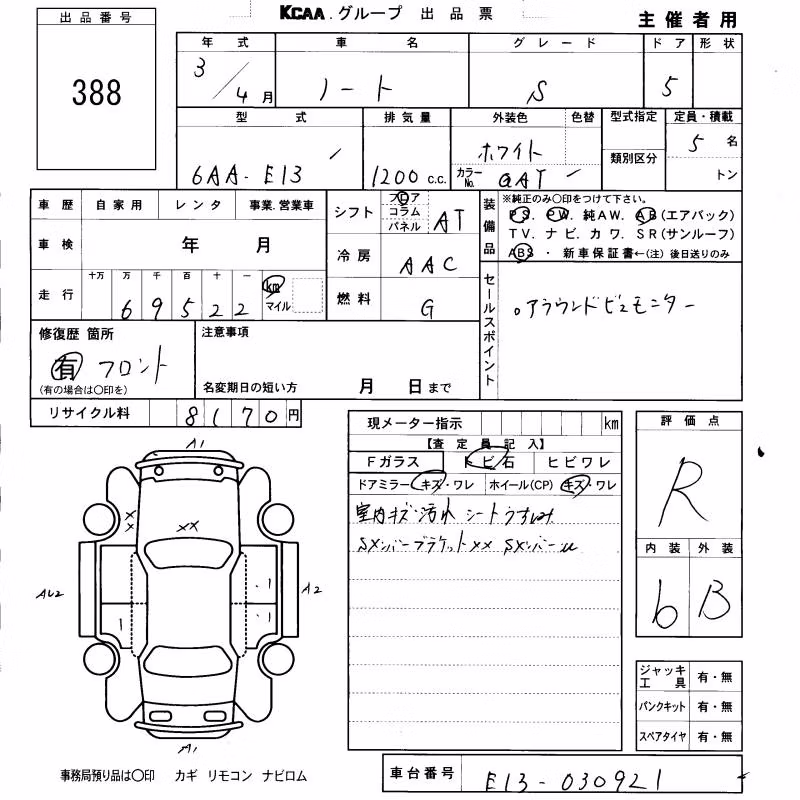 KCAA.グループ 出品票
主催者用
出品番号
388
年式 車名 グレード ドア 形状
3/4月 ノート S 5
型式 排気量 外装色 色替 型式指定 定員・積載
6AA-E13 1200c.c. ホワイト 5名
カラーNo. QAT 類別区分 トン
車歴 自家用 レンタ 事業.営業車
シフト フロア コラム パネル AT
装備品 ※純正のみ〇印をつけて下さい。
PS. PW. 純AW. AB(エアバック)
TV. ナビ. カワ. SR(サンルーフ)
ABS・ 新車保証書←(注)後日送りのみ
車検 年 月
冷房 AAC
走行 十万 万 千 百 十 一 km マイル
69522
燃料 G
セールスポイント
。アラウンドビュモニター
修復歴 箇所
有 フロント
(有の場合は〇印を)
注意事項
名変期日の短い方 月 日まで
リサイクル料 8170円
現メーター指示 km
【査定員記入】
Fガラス トビ石 ヒビワレ
ドアミラー キズ・ワレ ホイール(CP) キズ・ワレ
室内キズ汚れ シートうすしみ
SXンバーブラケットXX SXンバーu
評価点
R
内装 外装
b B
ジャッキ工具 有・無
パンクキット 有・無
スペアタイヤ 有・無
A1
XX
XX
AU2
A2
1
1
1
A1
事務局預り品は〇印 カギ リモコン ナビロム
車台番号 E13-030921